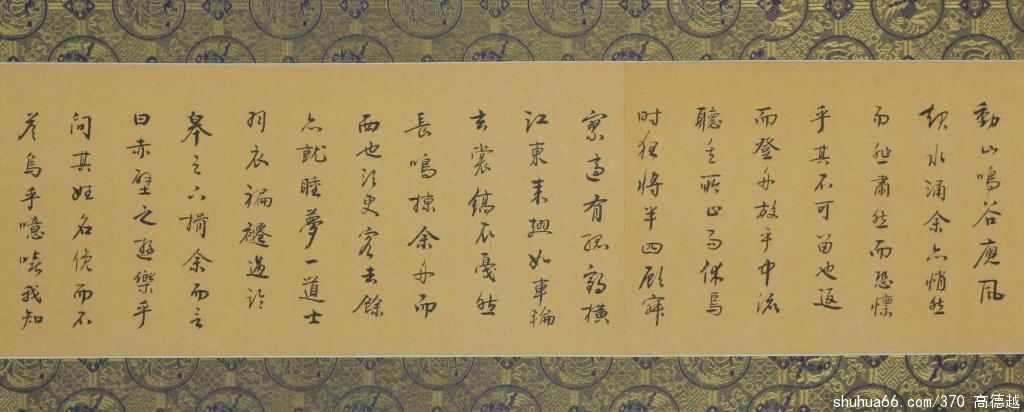 動山鳴谷應風
起水涌余亦悄然
而悲肅然而恐懍
乎其不可留也返
而登舟放乎中流
聽其所止而休焉
时夜將半四顧寂
寥適有孤鶴橫
江東来翅如車輪
玄裳縞衣戛然
長鳴掠余舟而
西也須臾客去餘
亦就睡夢一道士
羽衣褊褼過臨
皋之下揖余而言
曰赤壁之遊樂乎
問其姓名俛而不
答烏乎噫嘻我知
shuhua66.com/370 高德越